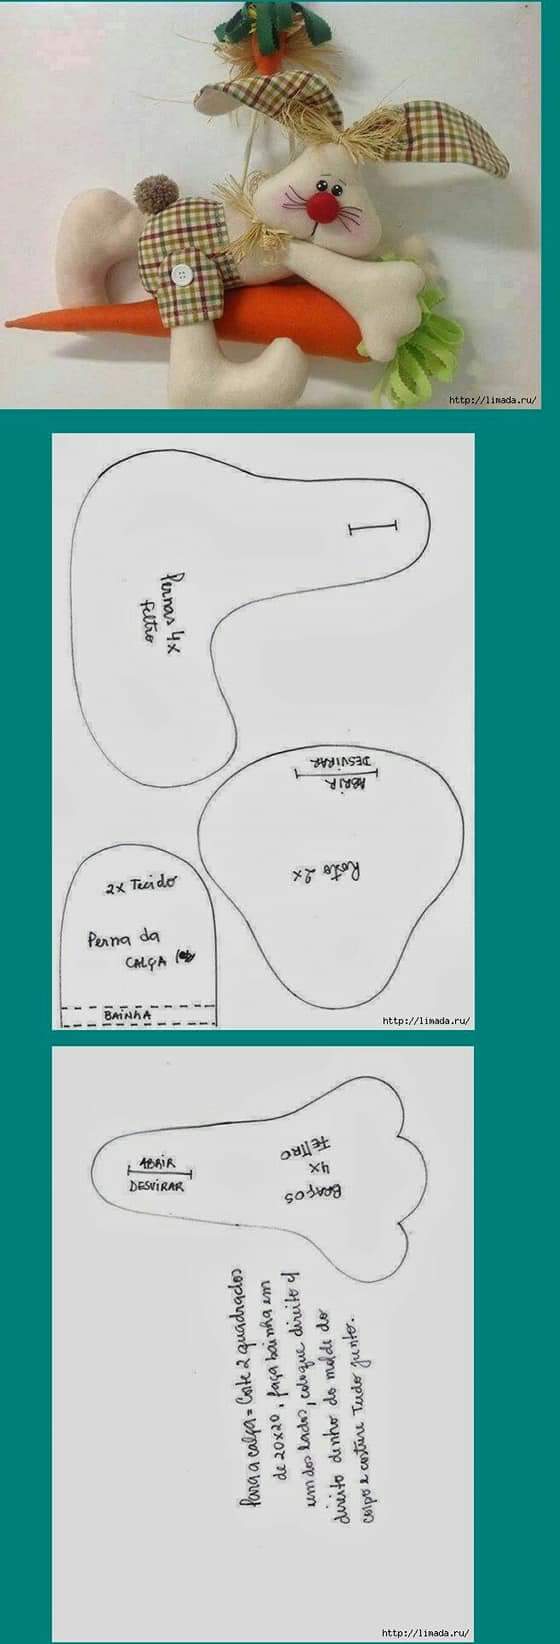 http://limada.ru/
Pernas 4x
Feltro
DESVIRAR
ABRIR
Rosto 2x
2x Tecido
Perna da
CALÇA
BAINHA
http://limada.ru/
ABRIR
DESVIRAR
BRAÇOS
4x
FELTRO
Para a calça = Corte 2 quadrados
de 20x20, faça bainha em
um dos lados, coloque direito c/
direito dentro do molde do
corpo e costure tudo junto.
http://limada.ru/